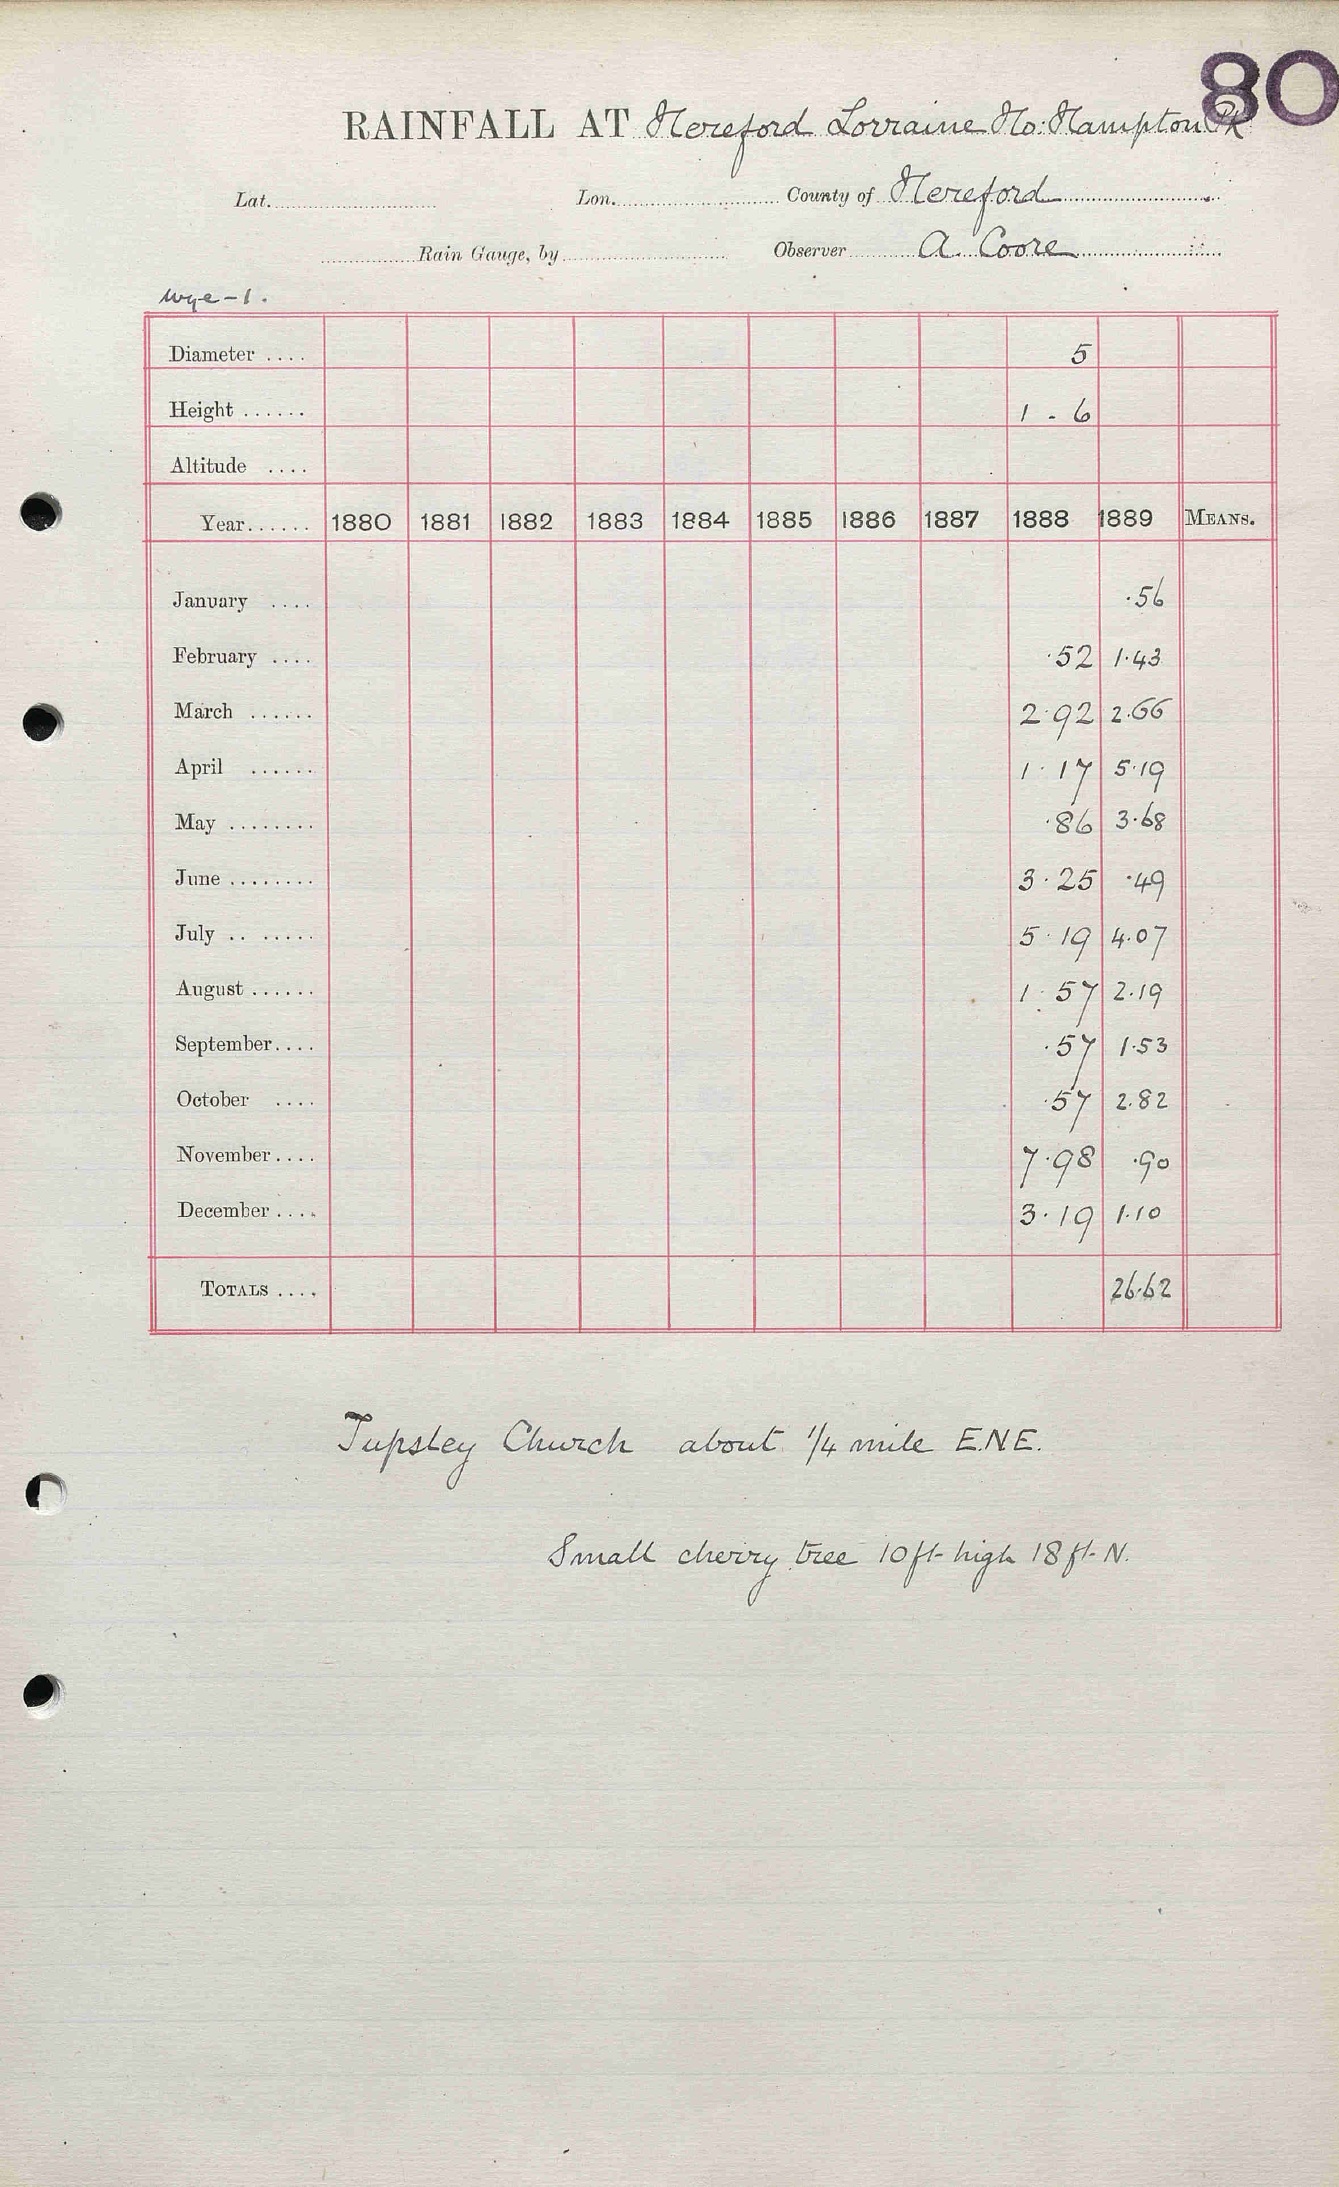 80
RAINFALL AT Hereford Lorraine Ho: Hampton Pk
Lat. Lon. County of Hereford
Rain Gauge, by Observer A. Coore
Wye – 1.
Diameter .... 5
Height ...... 1 - 6
Altitude ....
Year...... 1880 1881 1882 1883 1884 1885 1886 1887 1888 1889 MEANS.
January .... ·56
February .... ·52 1·43
March ...... 2·92 2·66
April ...... 1·17 5·19
May ........ ·86 3·68
June ........ 3·25 ·49
July .. ..... 5·19 4·07
August ...... 1·57 2·19
September.... ·57 1·53
October .... ·57 2·82
November.... 7·98 ·90
December .... 3·19 1·10
TOTALS .... 26·62
Tupsley Church about 1/4 mile E.N.E.
Small cherry tree 10 ft- high 18 ft- N.